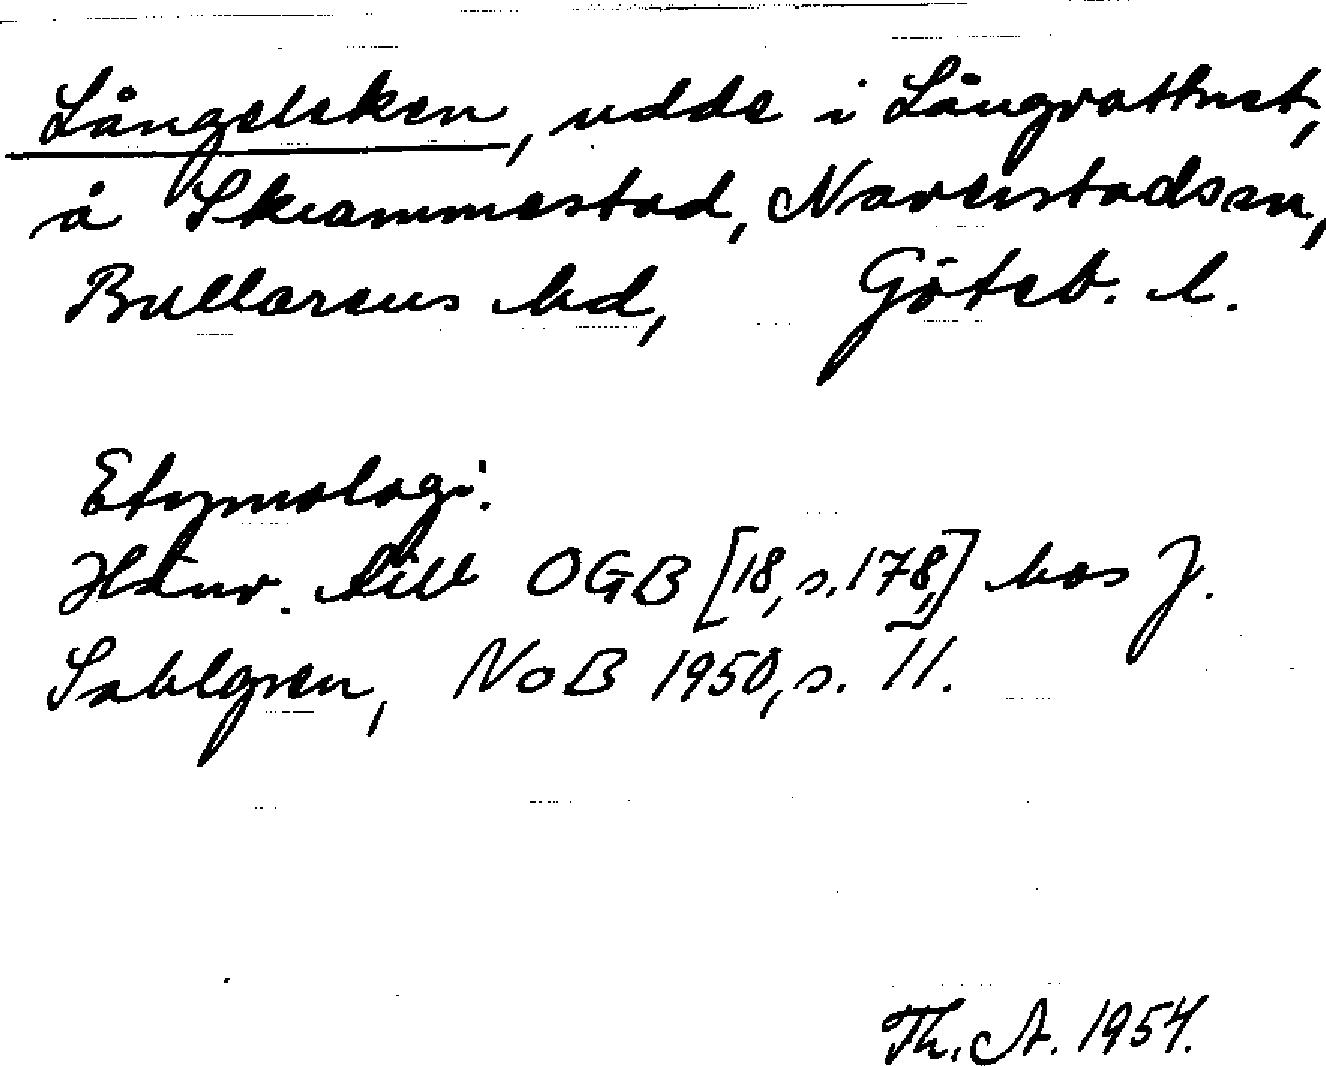 Långeleken, udde i Långvattnet,
å Skrammestad, Naverstads sn,
Bullarens hd, Göteb. l.
Etymologi.
Hänv. till OGB [18, s. 178,] hos J.
Sahlgren, NoB 1950, s. 11.
Th. A. 1954.